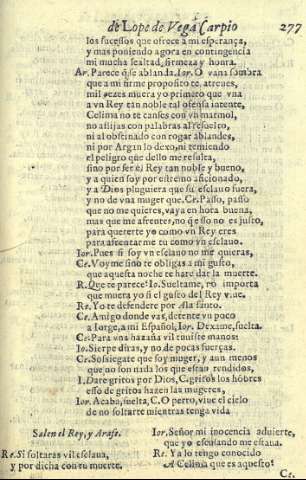 de Lope de Vega Carpio 277
los sucessos que ofrece a mi esperança,
y mas poniendo agora en contingencia
mi mucha lealtad, firmeza y honra.
Ar. Parece q̃ se ablanda. Ior. O vana sombra
que a mi firme proposito te atreues,
mil vezes muera yo primero que vna
a vn Rey tan noble tal ofensa intente,
Celima no te canses con vn marmol,
no aflijas con palabras al resuelto,
ni al obstinado con rogar ablandes,
ni por Argan lo dexo, ni temiendo
el peligro que dello me resulta,
sino por ser el Rey tan noble y bueno,
y a quien soy por estremo aficionado,
y a Dios pluguiera que su esclauo fuera,
y no de vna muger que. Ce. Passo, passo
que no me quieres, vaya en hora buena,
mas que me afrentes, no q̃ esso no es justo,
para quererte yo como vn Rey eres
para afrentarme tu como vn esclauo.
Ior. Pues si soy vn esclauo no me quieras,
Ce. Voyme sino te obligas a mi gusto,
que aquesta noche te hare dar la muerte.
R. Que te parece? Io. Sueltame, no importa
que muera yo si el gusto del Rey viue.
Re. Yo te defendere por Ala santo.
Ce. Amigo donde vas, detente vn poco
a Iorge, a mi Español, Ior. Dexame, suelta.
Ce. Para vna hazaña vil tuuiste manos
Io. Sierpe diras, y no de pocas fuerças.
Ce. Sossiegate que soy muger, y aun menos
que no son nada los que estan rendidos,
I. Dare gritos por Dios, C. gritos los hõbres
esso de gritos hagen las mugeres,
Ior. Acaba, suelta, C. O perro, viue el cielo
de no soltarte mientras tenga vida
Salen el Rey, y Arafe.
Re. Si soltaras vil esclaua,
y por dicha con tu muerte.
Ior. Señor mi inocencia aduierte,
que yo escusando me estaua.
Re. Ya lo tengo conocido
A Celima que es aquesto?
Ce.